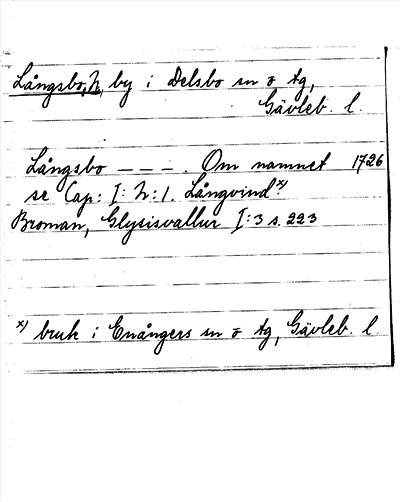 Långsbo, N, by i Delsbo sn o tg,
Gävleb. l.
Långsbo – – – . Om namnet 1726
se Cap: I: N: 1. Långvind x)
Broman, Glysisvallur I:3 s. 223
x) bruk i Enångers sn o tg, Gävleb. l.